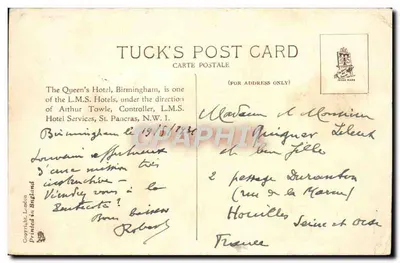 TUCK'S POST CARD
CARTE POSTALE
(FOR ADDRESS ONLY)
The Queen's Hotel, Birmingham, is one
of the L.M.S. Hotels, under the direction
of Arthur Towle, Controller, L.M.S.
Hotel Services, St. Pancras, N.W. 1.
Birmingham le
affectueux
D'une mission très
instructive -
Viendrez vous à la
Pentecôte?
Bons baisers
Robert
Madame et Monsieur
et leur fille
2 passage
(rue de la Marne)
Houilles
Seine et Oise
France
Copyright, London
Printed in England